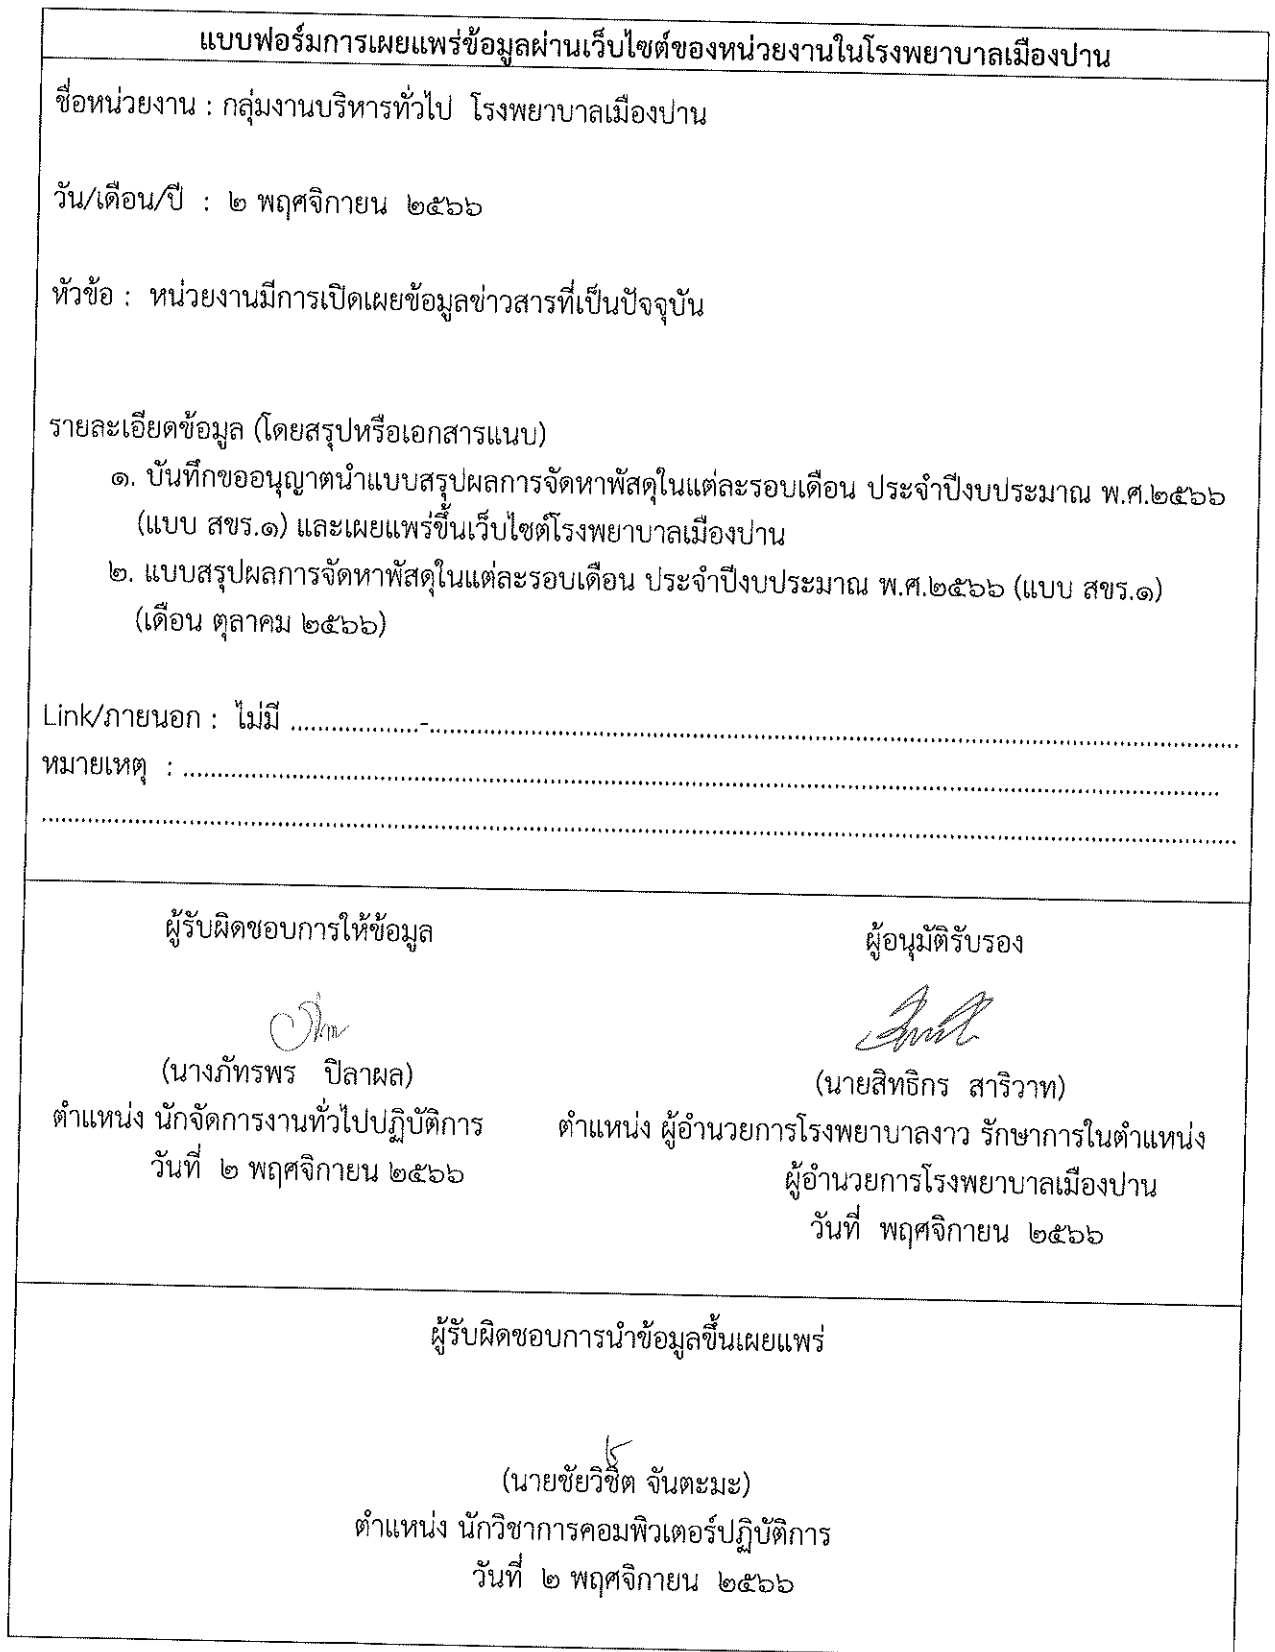 แบบฟอร์มการเผยแพร่ข้อมูลผ่านเว็บไซต์ของหน่วยงานในโรงพยาบาลเมืองปาน
ชื่อหน่วยงาน : กลุ่มงานบริหารทั่วไป โรงพยาบาลเมืองปาน
วัน/เดือน/ปี : ๒ พฤศจิกายน ๒๕๖๖
หัวข้อ : หน่วยงานมีการเปิดเผยข้อมูลข่าวสารที่เป็นปัจจุบัน
รายละเอียดข้อมูล (โดยสรุปหรือเอกสารแนบ)
๑. บันทึกขออนุญาตนำแบบสรุปผลการจัดหาพัสดุในแต่ละรอบเดือน ประจำปีงบประมาณ พ.ศ.๒๕๖๖
(แบบ สขร.๑) และเผยแพร่ขึ้นเว็บไซต์โรงพยาบาลเมืองปาน
๒. แบบสรุปผลการจัดหาพัสดุในแต่ละรอบเดือน ประจำปีงบประมาณ พ.ศ.๒๕๖๖ (แบบ สขร.๑)
(เดือน ตุลาคม ๒๕๖๖)
Link/ภายนอก : ไม่มี ...................-......................................................................................................................
หมายเหตุ : .........................................................................................................................................................
..................................................................................................................................................................................
ผู้รับผิดชอบการให้ข้อมูล
(นางภัทรพร ปิลาผล)
ตำแหน่ง นักจัดการงานทั่วไปปฏิบัติการ
วันที่ ๒ พฤศจิกายน ๒๕๖๖
ผู้อนุมัติรับรอง
(นายสิทธิกร สาริวาท)
ตำแหน่ง ผู้อำนวยการโรงพยาบาลงาว รักษาการในตำแหน่ง
ผู้อำนวยการโรงพยาบาลเมืองปาน
วันที่ พฤศจิกายน ๒๕๖๖
ผู้รับผิดชอบการนำข้อมูลขึ้นเผยแพร่
(นายชัยวิชิต จันตะมะ)
ตำแหน่ง นักวิชาการคอมพิวเตอร์ปฏิบัติการ
วันที่ ๒ พฤศจิกายน ๒๕๖๖